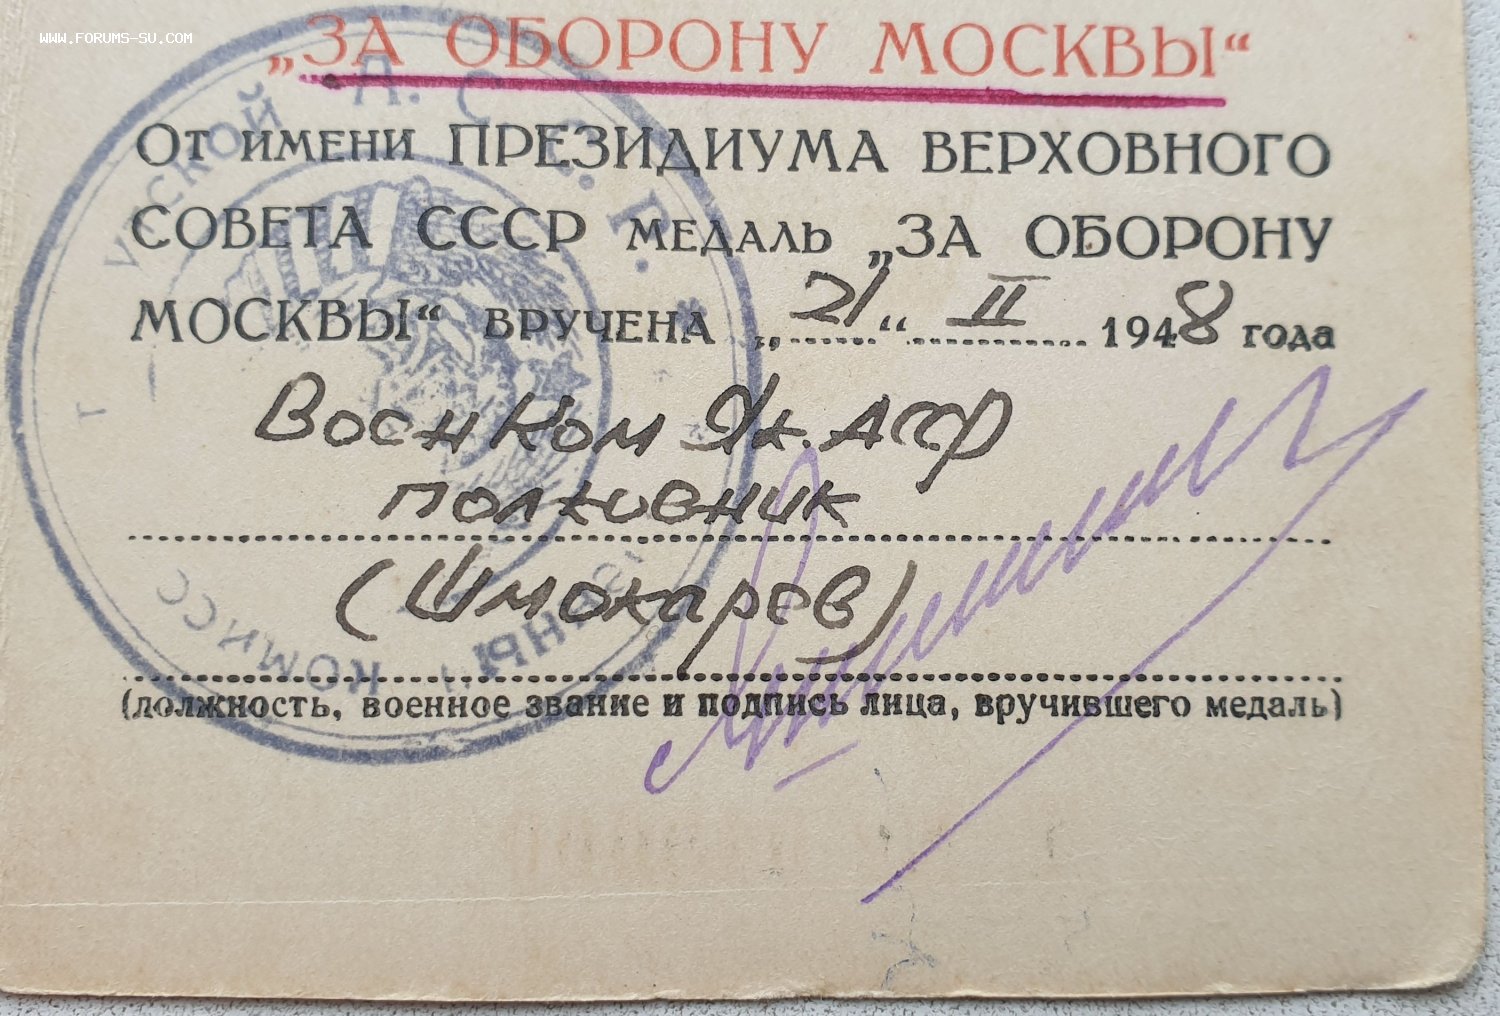 WWW.FORUMS-SU.COM
„ЗА ОБОРОНУ МОСКВЫ“
От имени ПРЕЗИДИУМА ВЕРХОВНОГО
СОВЕТА СССР медаль „ЗА ОБОРОНУ
МОСКВЫ“ вручена „21“ II 1948 года
Военком Як. АССР
полковник
(Шмокарев)
(должность, военное звание и подпись лица, вручившего медаль)
УТСКОЙ А. С. С. Р. * КОМИСС